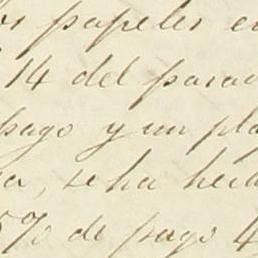 os papeles en
14 del pasad
pago y un pla
a, se ha hech
5% de pago 4